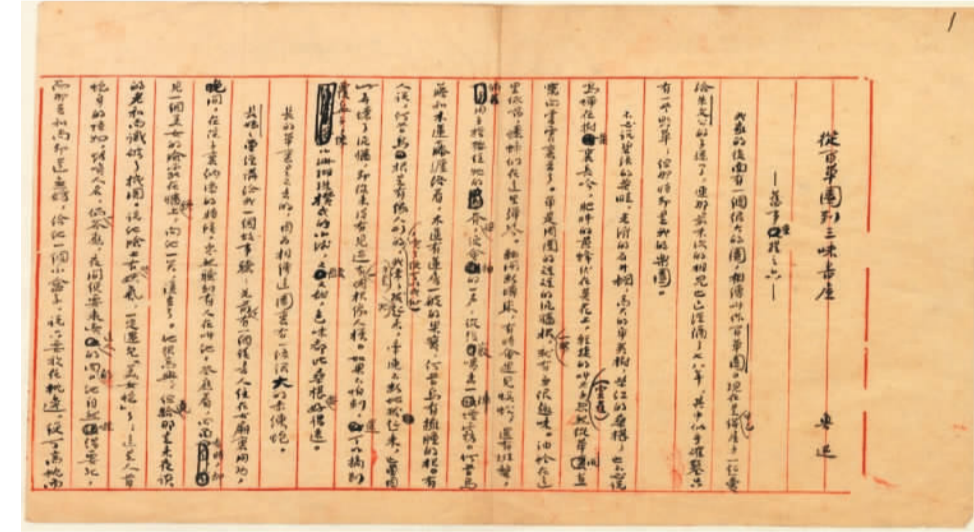 1
從百草園到三味書屋
——舊事重提之六——
魯迅
我家的後面有一個很大的園，相傳叫作百草園。現在是早已併屋子一起賣
給朱文公的子孫了，連那最末次的相見也已經隔了七八年，其中似乎確鑿只
有一些野草；但那時卻是我的樂園。
不必說碧綠的菜畦，光滑的石井欄，高大的皂莢樹，紫紅的桑椹；也不必說
鳴蟬在樹葉裏長吟，肥胖的黃蜂伏在菜花上，輕捷的叫天子（雲雀）忽然從草間直
竄向雲霄裏去了。單是周圍的短短的泥牆根一帶，就有無限趣味。油蛉在這
里低唱，蟋蟀們在這里彈琴。翻開斷磚來，有時會遇見蜈蚣；還有斑蝥，
倘若用手指按住他的脊梁，便會拍的一聲，從後竅噴出一陣煙霧。何首烏
藤和木蓮藤纏絡着，木蓮有蓮房一般的果實，何首烏有擁腫的根。有
人說，何首烏根是有像人形的，吃了便可以成仙，我於是常常拔起來，牽連不斷地拔起來，也曾因
此弄壞了泥牆，卻從來沒有見過有一塊根像人樣。如果不怕刺，還可以摘到
覆盆子，像小珊瑚珠攢成的小球，又酸又甜，色味都比桑椹要好得遠。
長的草裏是不去的，因為相傳這園裏有一條很大的赤練蛇。
長媽媽曾經講給我一個故事聽：先前，有一個讀書人住在古廟裏用功，
晚間，在院子裏納涼的時候，突然聽到有人在叫他。答應着，四面看時，卻
見一個美女的臉露在牆頭上，向他一笑，隱去了。他很高興；但竟給那走來夜談
的老和尚識破了機關。說他臉上有些妖氣，一定遇見「美女蛇」了；這是人首
蛇身的怪物，能喚人名，倘一答應，夜間便要來吃這人的肉的。他自然嚇得要死，
而那老和尚卻道無妨，給他一個小盒子，說只要放在枕邊，便可高枕而